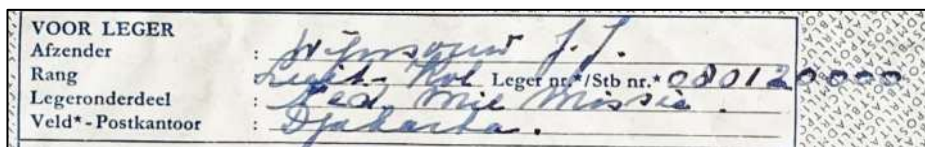 VOOR LEGER
Afzender : J. J.
Rang Luit-Kol Leger nr.*/Stb nr.* 080120000
Legeronderdeel : Ned. Mil Missie.
Veld*-Postkantoor : Djakarta.